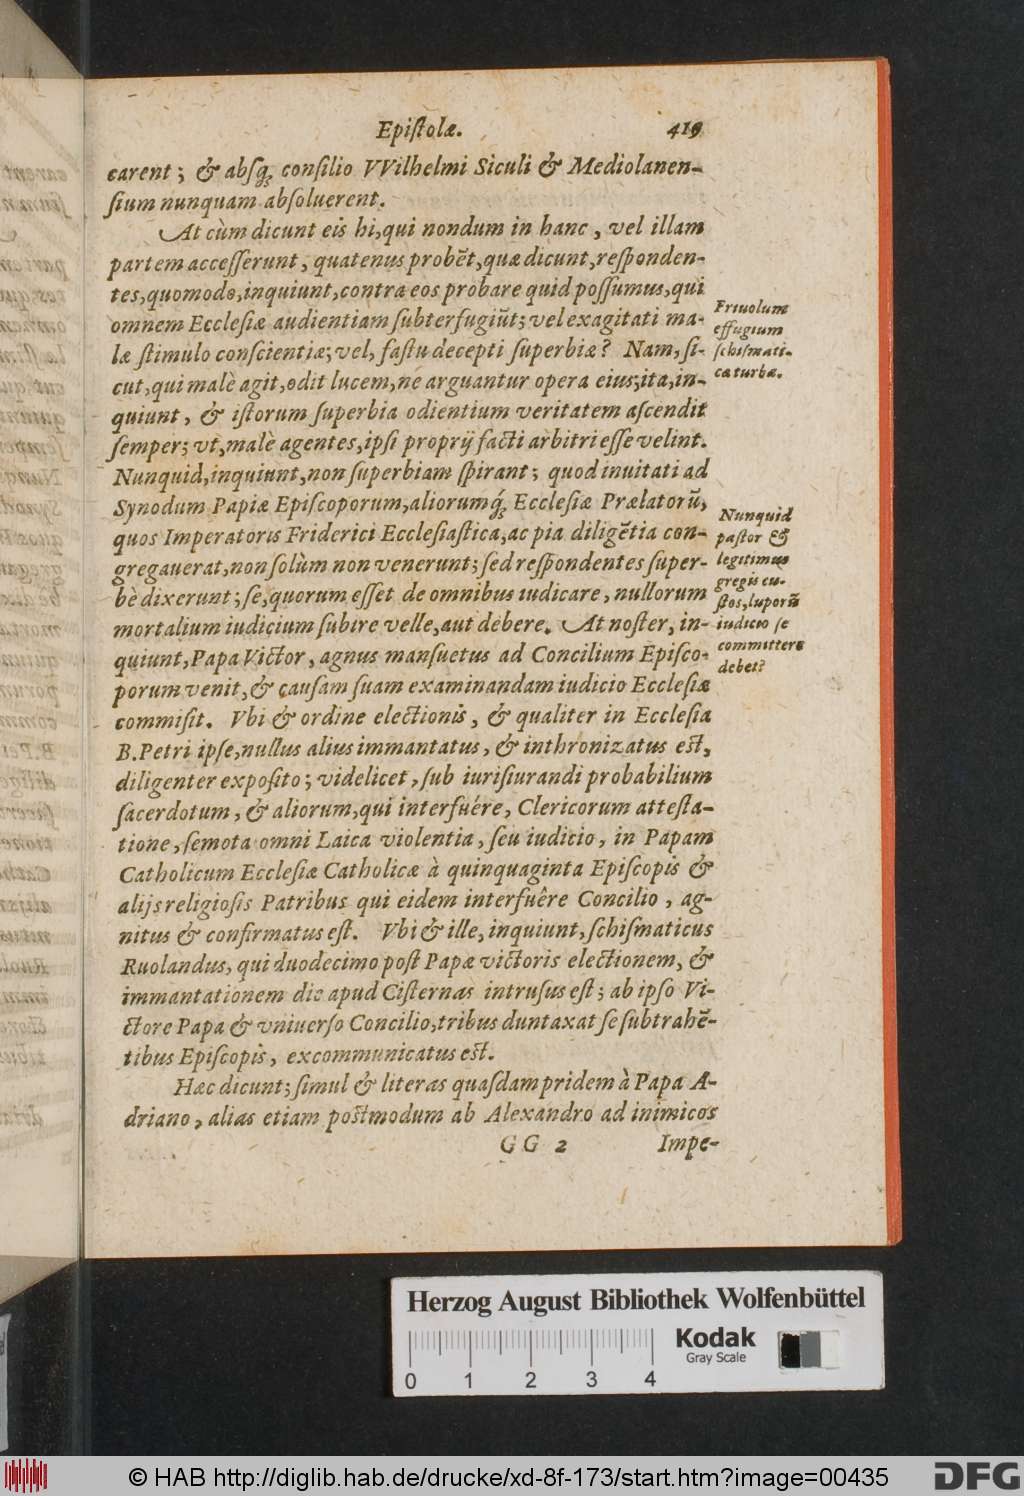 Epistolæ. 419
carent; & absq́; consilio VVilhelmi Siculi & Mediolanen-
sium nunquam absoluerent.
At cùm dicunt eis hi, qui nondum in hanc, vel illam
partem accesserunt, quatenus probẽt, quæ dicunt, responden-
tes, quomodo, inquiunt, contra eos probare quid possumus, qui
omnem Ecclesiæ audientiam subterfugiũt; vel exagitati ma-
læ stimulo conscientiæ; vel, fastu decepti superbiæ? Nam, si-
cut, qui malè agit, odit lucem, ne arguantur opera eius; ita, in-
quiunt, & istorum superbia odientium veritatem ascendit
semper; vt, malè agentes, ipsi proprij facti arbitri esse velint.
Nunquid, inquiunt, non superbiam spirant; quod inuitati ad
Synodum Papiæ Episcoporum, aliorumq́; Ecclesiæ Prælatorũ,
quos Imperatoris Friderici Ecclesiastica, ac pia diligẽtia con-
gregauerat, non solùm non venerunt; sed respondentes super-
bè dixerunt; se, quorum esset de omnibus iudicare, nullorum
mortalium iudicium subire velle, aut debere. At noster, in-
quiunt, Papa Victor, agnus mansuetus ad Concilium Episco-
porum venit, & causam suam examinandam iudicio Ecclesiæ
commisit. Vbi & ordine electionis, & qualiter in Ecclesia
B. Petri ipse, nullus alius immantatus, & inthronizatus est,
diligenter exposito; videlicet, sub iurisiurandi probabilium
sacerdotum, & aliorum, qui interfuére, Clericorum attesta-
tione, semota omni Laica violentia, seu iudicio, in Papam
Catholicum Ecclesiæ Catholicæ à quinquaginta Episcopis &
alijs religiosis Patribus qui eidem interfuêre Concilio, ag-
nitus & confirmatus est. Vbi & ille, inquiunt, schismaticus
Ruolandus, qui duodecimo post Papæ victoris electionem, &
immantationem die apud Cisternas intrusus est; ab ipso Vi-
ctore Papa & vniuerso Concilio, tribus duntaxat se subtrahẽ-
tibus Episcopis, excommunicatus est.
Hæc dicunt; simul & literas quasdam pridem à Papa A-
driano, alias etiam postmodum ab Alexandro ad inimicos
GG 2 Impe-
Friuolum
effugium
schismati-
ca turbæ.
Nunquid
pastor &
legitimus
gregis cu-
stos, luporũ
iudicio se
committere
debet?
Herzog August Bibliothek Wolfenbüttel
Kodak
Gray Scale
0 1 2 3 4
© HAB http://diglib.hab.de/drucke/xd-8f-173/start.htm?image=00435
DFG